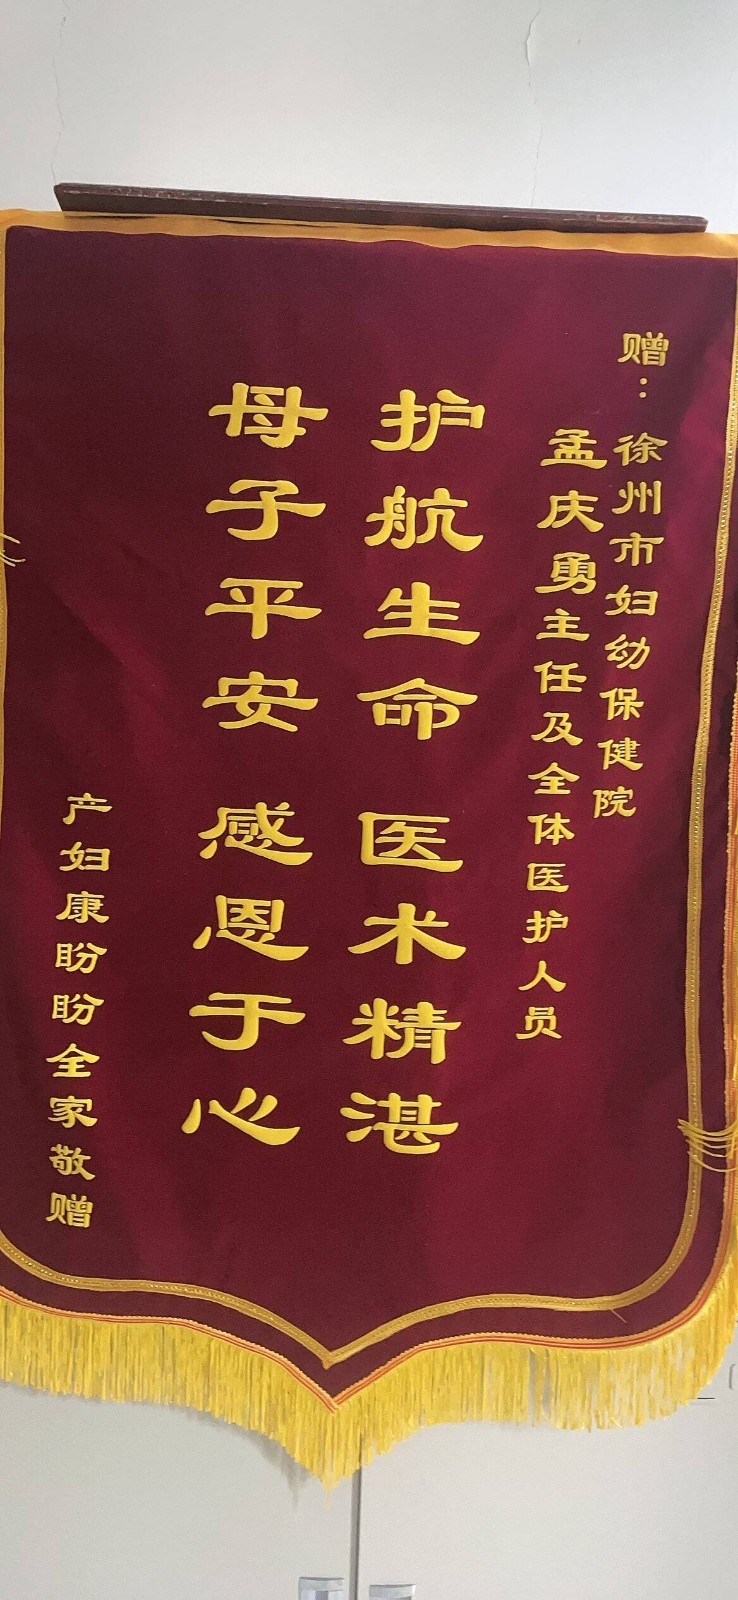 赠：徐州市妇幼保健院
孟庆勇主任及全体医护人员
护航生命 医术精湛
母子平安 感恩于心
产妇康盼盼全家敬赠